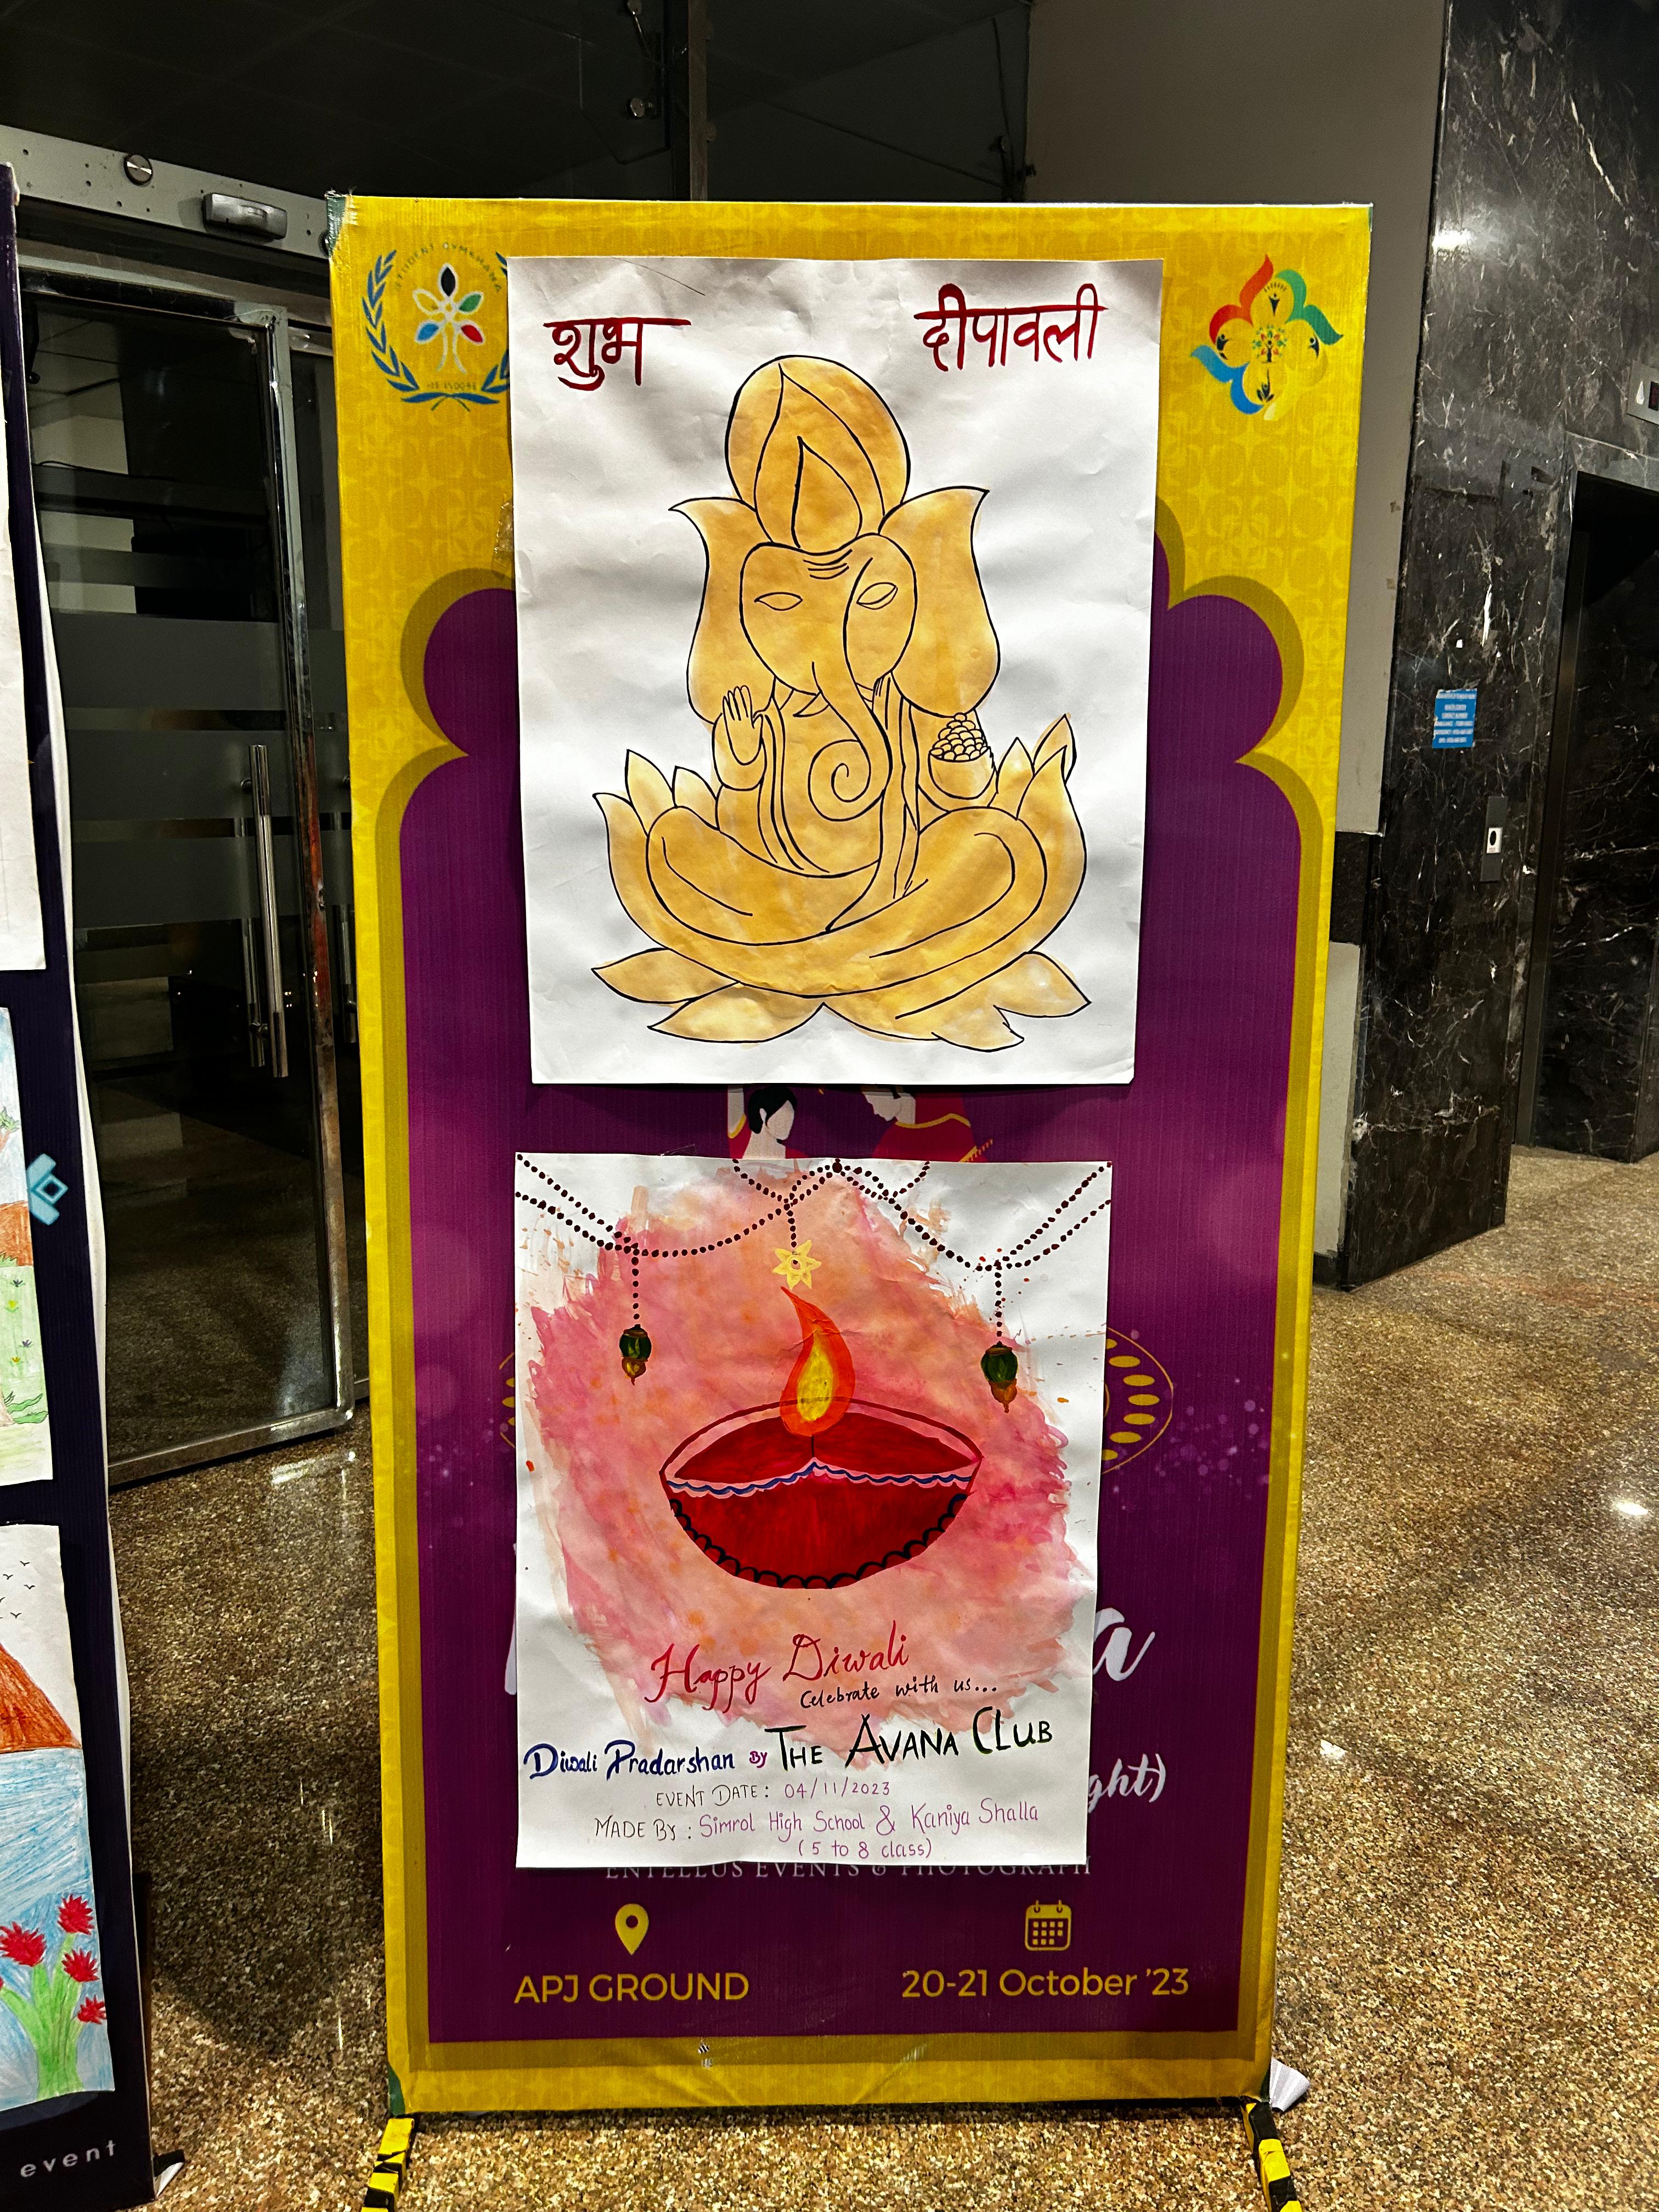 STUDENT GYMKHANA
शुभ दीपावली
Happy Diwali
Celebrate with us...
Diwali Pradarshan By THE AVANA CLUB
EVENT DATE: 04/11/2023
MADE By : Simrol High School & Kaniya Shalla
( 5 to 8 class)
ght)
ENTELLUS EVENTS & PHOTOGRAPH
APJ GROUND
20-21 October '23
event